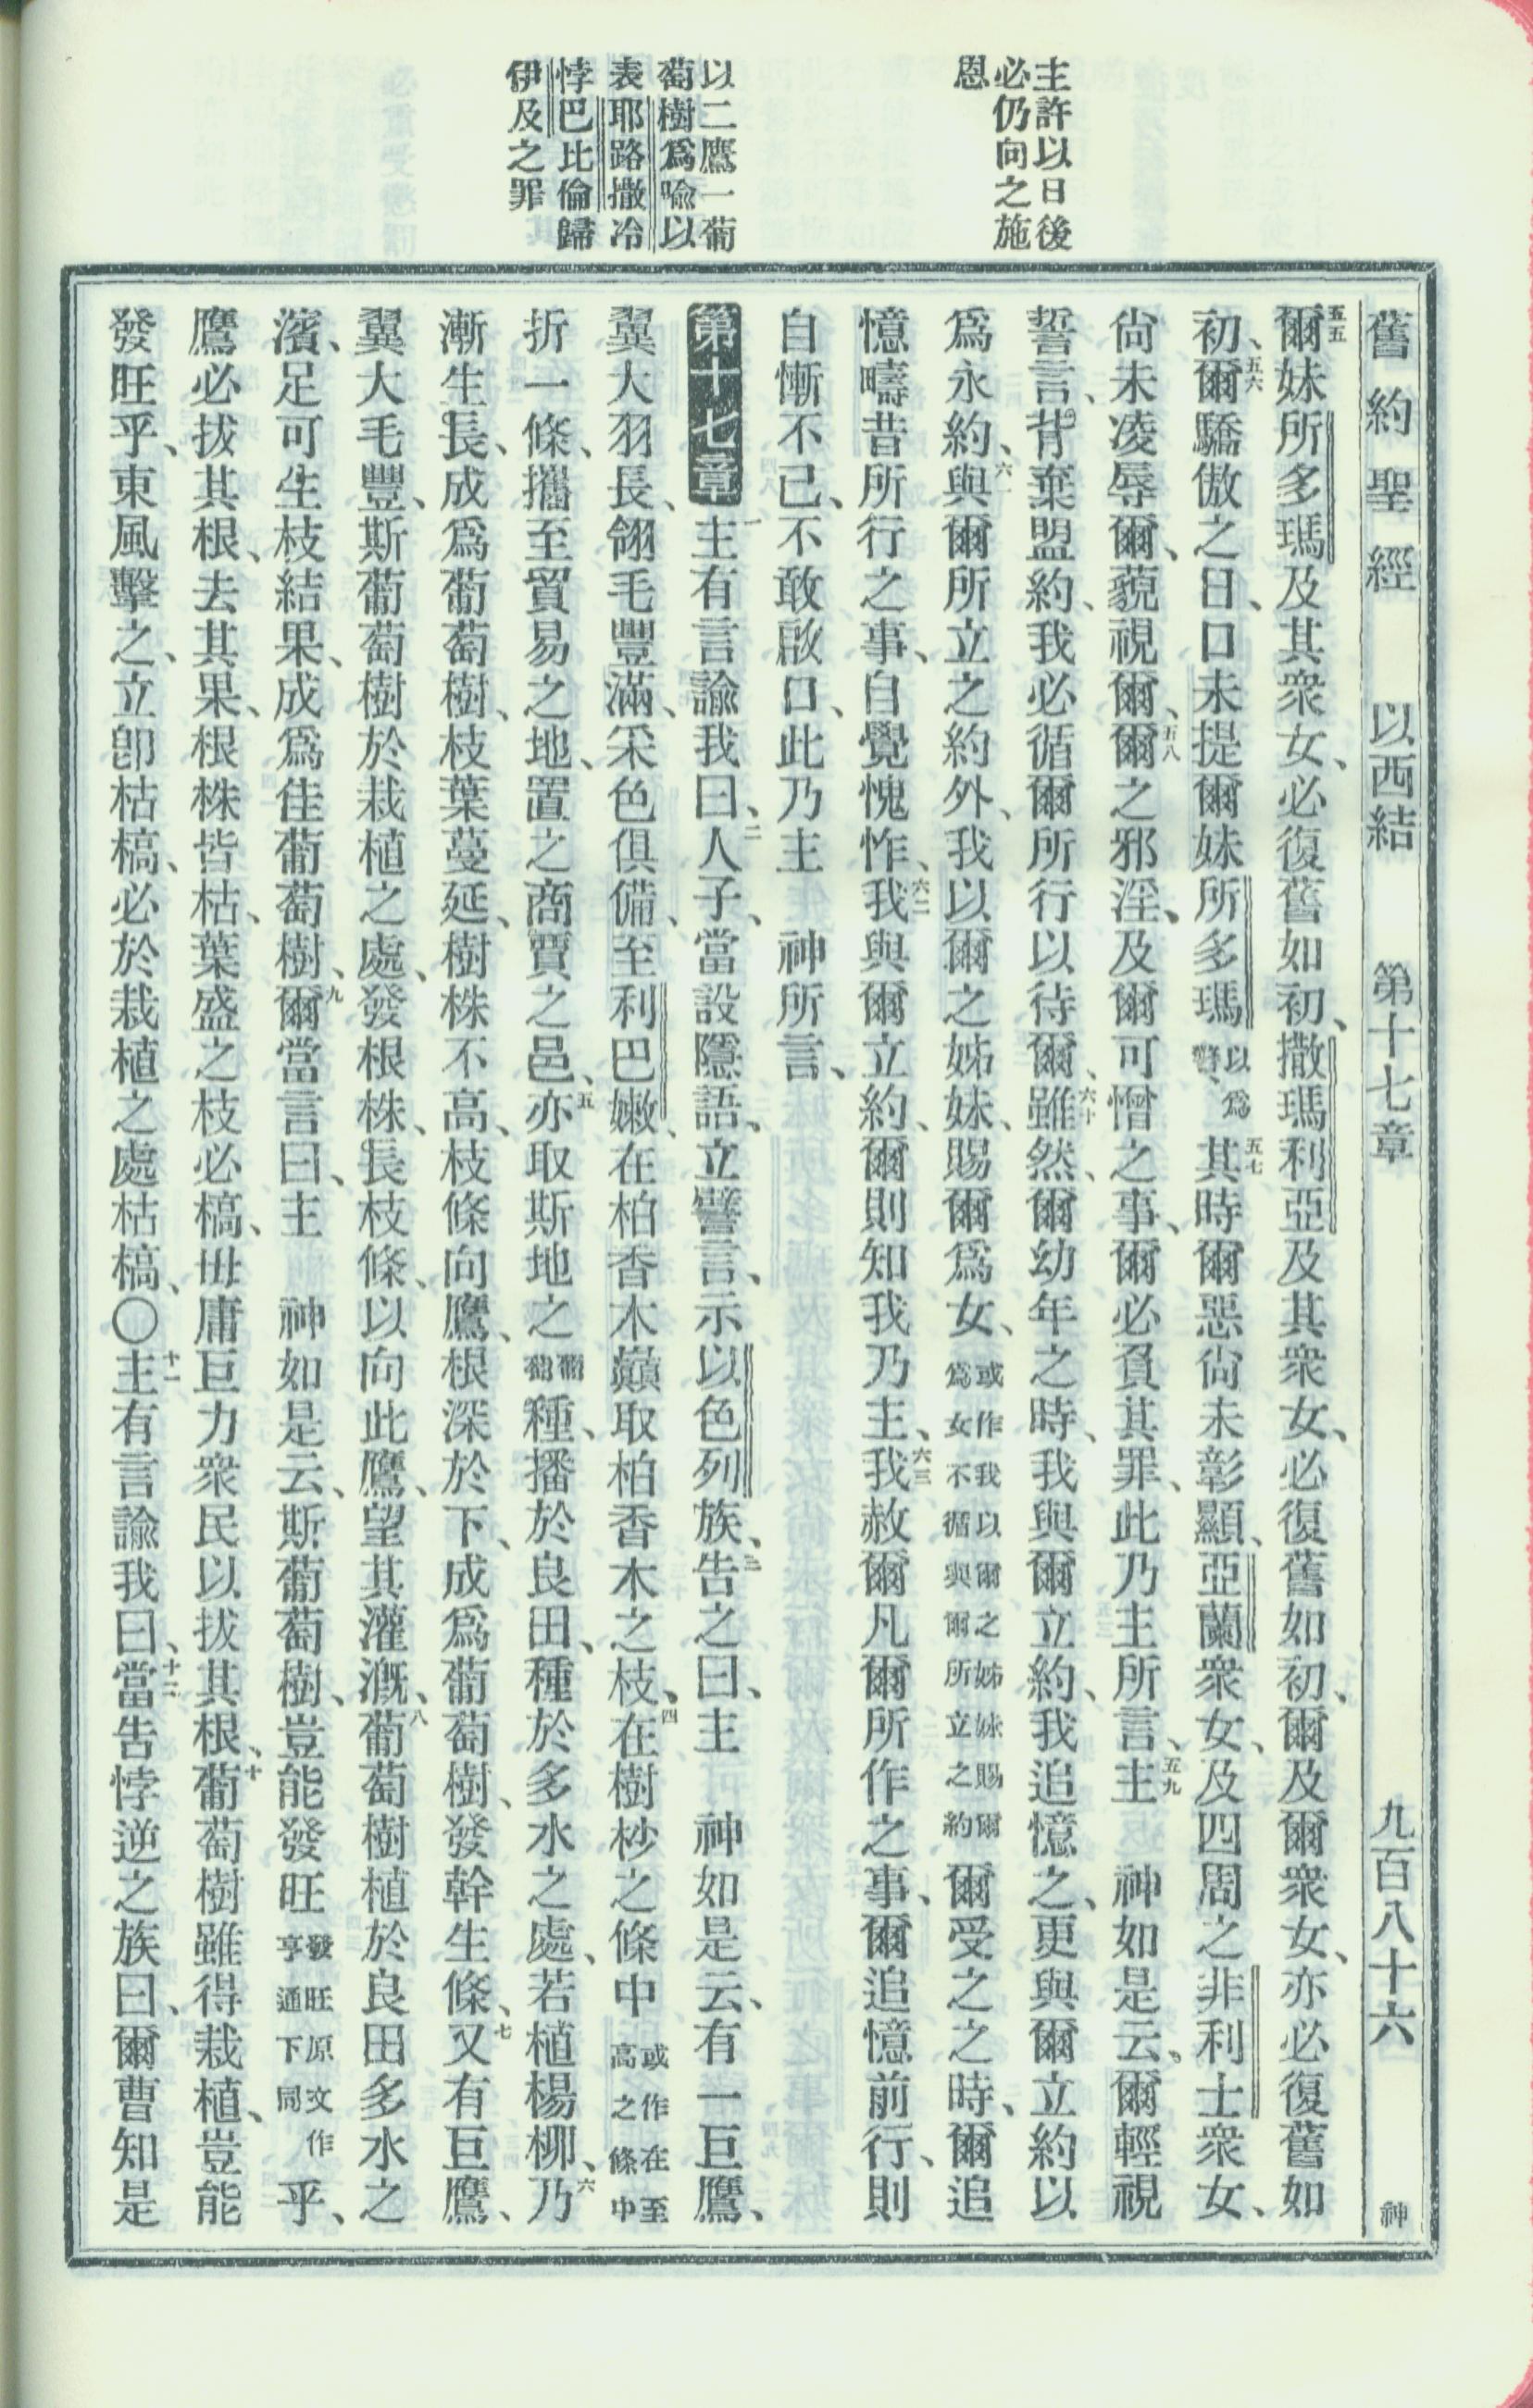 主許以日後
必仍向之施
恩
以二鷹一葡
萄樹爲喩以
表耶路撒冷
悖巴比倫歸
伊及之罪
舊約聖經 以西結 第十七章 九百八十六 神
五五爾妹所多瑪及其衆女、必復舊如初、撒瑪利亞及其衆女、必復舊如初、爾及爾衆女、亦必復舊如
初、五六爾驕傲之日、口未提爾妹所多瑪以爲譬、五七其時爾惡尙未彰顯、亞蘭衆女、及四周之非利士衆女、
尙未凌辱爾、藐視爾、五八爾之邪淫、及爾可憎之事、爾必負其罪、此乃主所言、五九主 神如是云、爾輕視
誓言、背棄盟約、我必循爾所行以待爾、六十雖然、爾幼年之時、我與爾立約、我追憶之、更與爾立約以
爲永約、六一與爾所立之約外、我以爾之姊妹、賜爾爲女、或作我以爾之姊妹賜爾爲女不循與爾所立之約爾受之之時、爾追
憶疇昔所行之事、自覺愧怍、六二我與爾立約、爾則知我乃主、六三我赦爾凡爾所作之事、爾追憶前行、則
自慚不已、不敢啟口、此乃主 神所言、
第十七章 一主有言諭我曰、二人子、當設隱語、立譬言、示以色列族、三告之曰、主 神如是云、有一巨鷹、
翼大羽長、翎毛豐滿、采色俱備、至利巴嫩、在柏香木巔取柏香木之枝、四在樹杪之條中或作在至高之條中
折一條、攜至貿易之地、置之商賈之邑、五亦取斯地之葡萄種、播於良田、種於多水之處、若植楊柳、六乃
漸生長、成爲葡萄樹、枝葉蔓延、樹株不高、枝條向鷹、根深於下、成爲葡萄樹、發幹生條、七又有巨鷹、
翼大毛豐、斯葡萄樹於栽植之處、發根株、長枝條、以向此鷹、望其灌漑、八葡萄樹植於良田多水之
濱、足可生枝結果、成爲佳葡萄樹、九爾當言曰、主 神如是云、斯葡萄樹、豈能發旺發旺原文作亨通下同乎、
鷹必拔其根、去其果、根株皆枯、葉盛之枝必槁、毋庸巨力衆民以拔其根、十葡萄樹雖得栽植、豈能
發旺乎、東風擊之、立卽枯槁、必於栽植之處枯槁、〇十一主有言諭我曰、十二當吿悖逆之族曰、爾曹知是